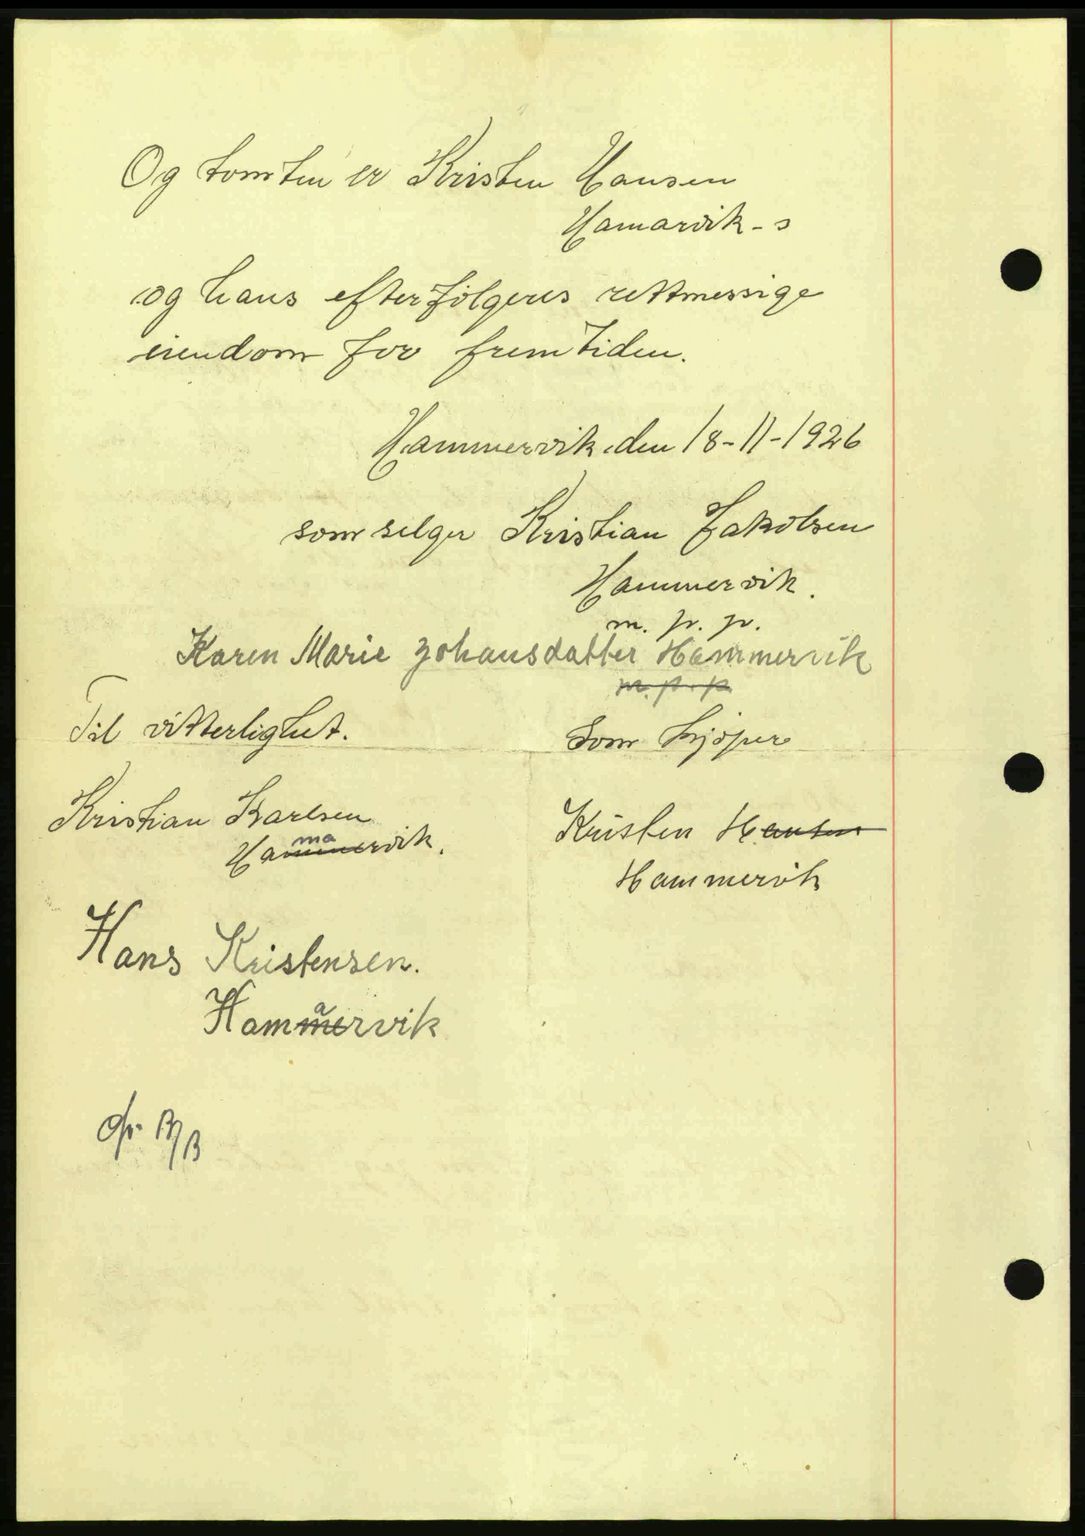 Og tomten er Kristen Hansen
Hamarvik-s
og hans efterfölgeres rettmessige
eiendom for fremtiden.
Hammervik. den 18-11-1926
som selger Kristian Jakobsen
Hammervik.
m. p. p.
Karen Marie Johansdatter Hammervik
m. p. p
Til vitterlighet.
Som kjöper
Kristian Karlsen
Hammervik.
ma
Kristen Hansen
Hammervik
Hans Kristensen.
Hammervik
a